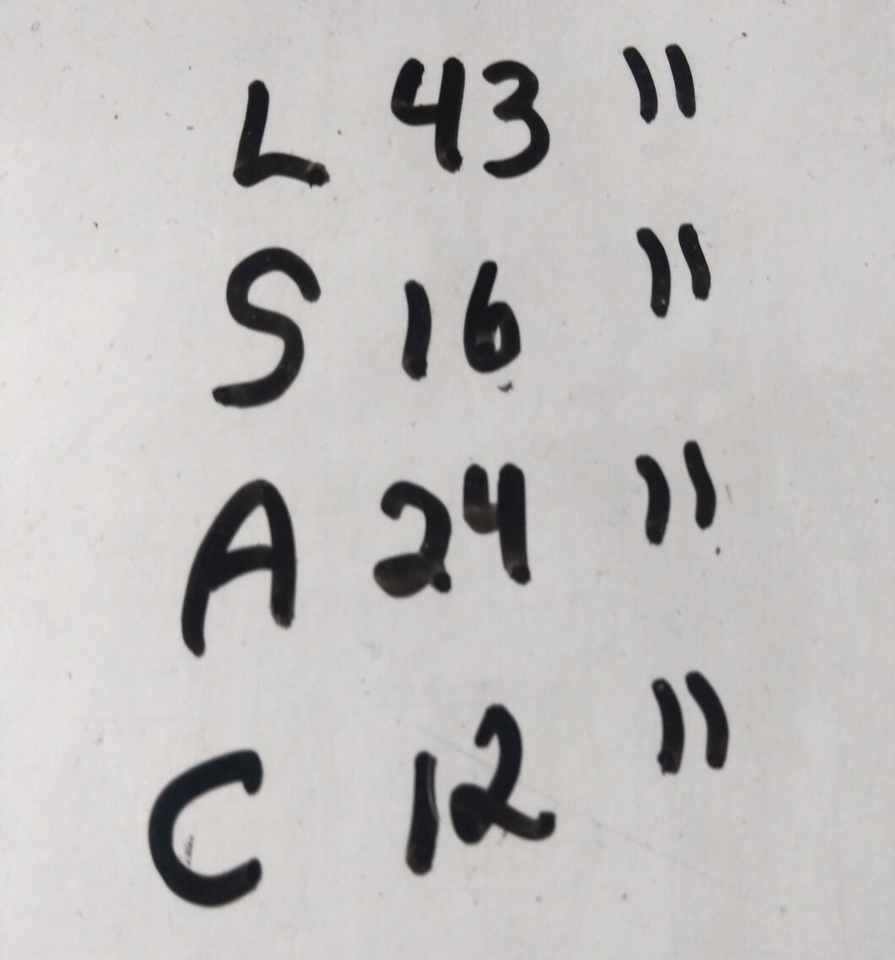 L 43 "
S 16 "
A 24 "
C 12 "